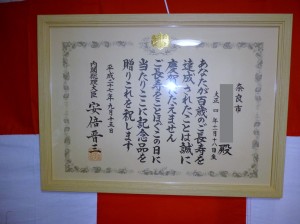 奈良市
殿
大正四年二月十八日生
あなたが百歳のご長寿を
達成されたことは誠に
慶賀にたえません
ご長寿をことほぐこの日に
当たりここに記念品を
贈りこれを祝します
平成二十七年九月十五日
内閣総理大臣 安倍晋三